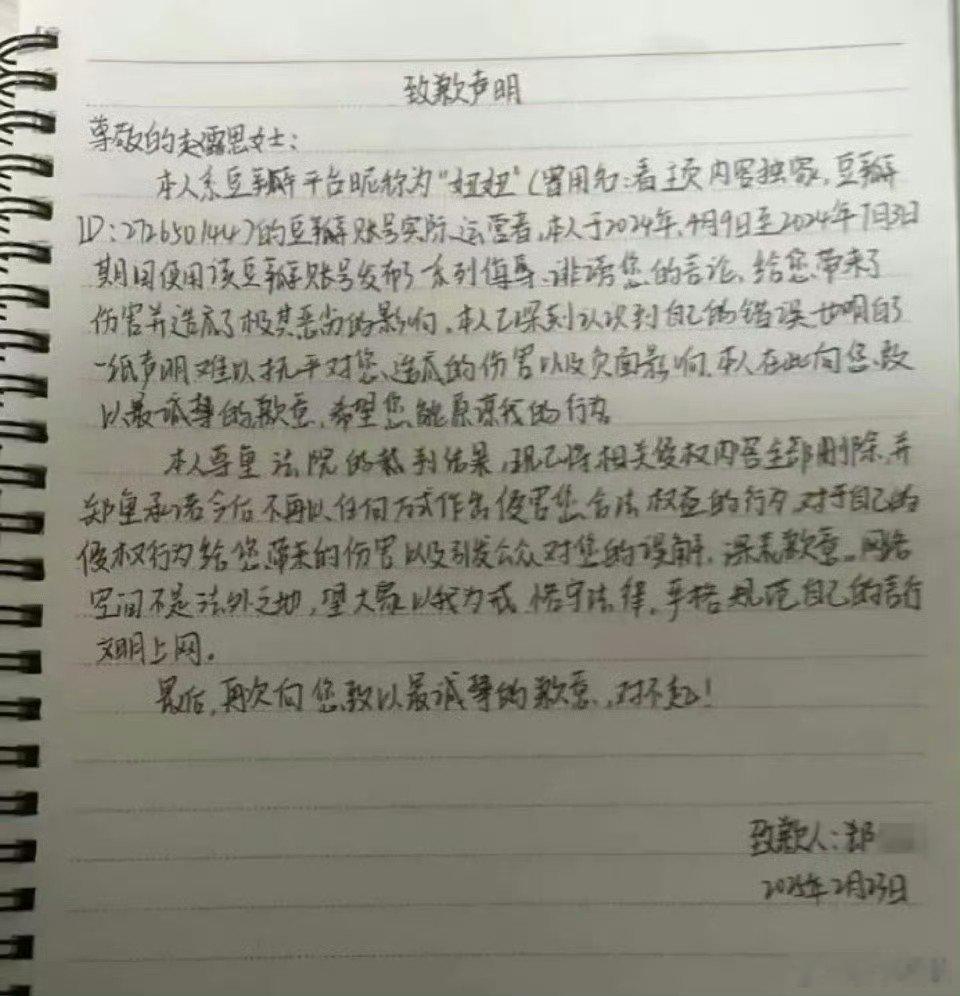 致歉声明
尊敬的赵露思女士：
本人系豆瓣平台昵称为“妞妞”（曾用名：看主页内容独家，豆瓣
ID：272650144）的豆瓣账号实际运营者，本人于2024年4月9日至2024年7月3日
期间使用该豆瓣账号发布了系列侮辱、诽谤您的言论，给您带来了
伤害并造成了极其恶劣的影响。本人已深刻认识到自己的错误也明白了
一纸声明难以抚平对您造成的伤害以及负面影响，本人在此向您致
以最诚挚的歉意，希望您能原谅我的行为
本人尊重法院的裁判结果，现已将相关侵权内容全部删除，并
郑重承诺今后不再以任何方式作出侵害您合法权益的行为，对于自己的
侵权行为给您带来的伤害以及引发公众对您的误解，深表歉意。网络
空间不是法外之地，望大家以我为戒，恪守法律，严格规范自己的言行
文明上网。
最后，再次向您致以最诚挚的歉意，对不起！
致歉人：郑
2025年2月23日